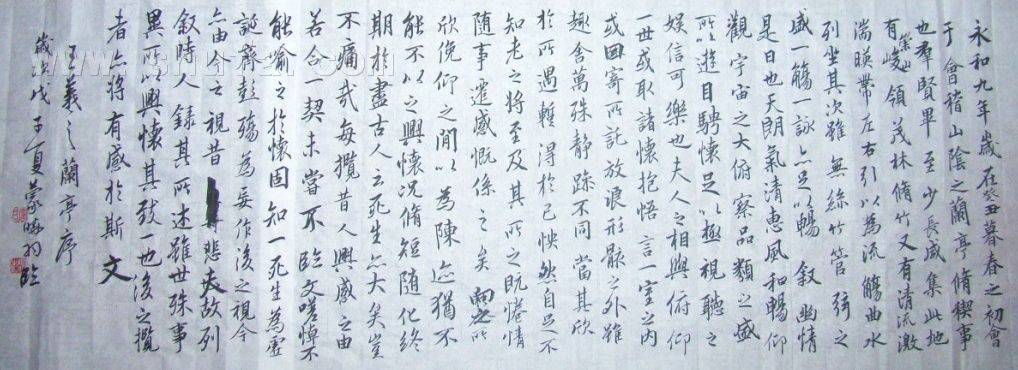 永和九年歲在癸丑暮春之初會
于會稽山陰之蘭亭脩稧事
也羣賢畢至少長咸集此地
有崇山峻領茂林脩竹又有清流激
湍暎帶左右引以為流觴曲水
列坐其次雖無絲竹管弦之
盛一觴一詠亦足以暢敘幽情
是日也天朗氣清惠風和暢仰
觀宇宙之大俯察品類之盛
所以遊目騁懷足以極視聽之
娛信可樂也夫人之相與俯仰
一世或取諸懷抱悟言一室之內
或因寄所託放浪形骸之外雖
趣舍萬殊靜躁不同當其欣
於所遇暫得於己怏然自足不
知老之將至及其所之既惓情
隨事遷感慨係之矣向之所
欣俛仰之閒以為陳迹猶不
能不以之興懷況脩短隨化終
期於盡古人云死生亦大矣豈
不痛哉每攬昔人興感之由
若合一契未嘗不臨文嗟悼不
能喻之於懷固知一死生為虛
誕齊彭殤為妄作後之視今
亦由今之視昔悲夫故列
敘時人錄其所述雖世殊事
異所以興懷其致一也後之攬
者亦將有感於斯文
王羲之蘭亭序
歲次戊子夏臨